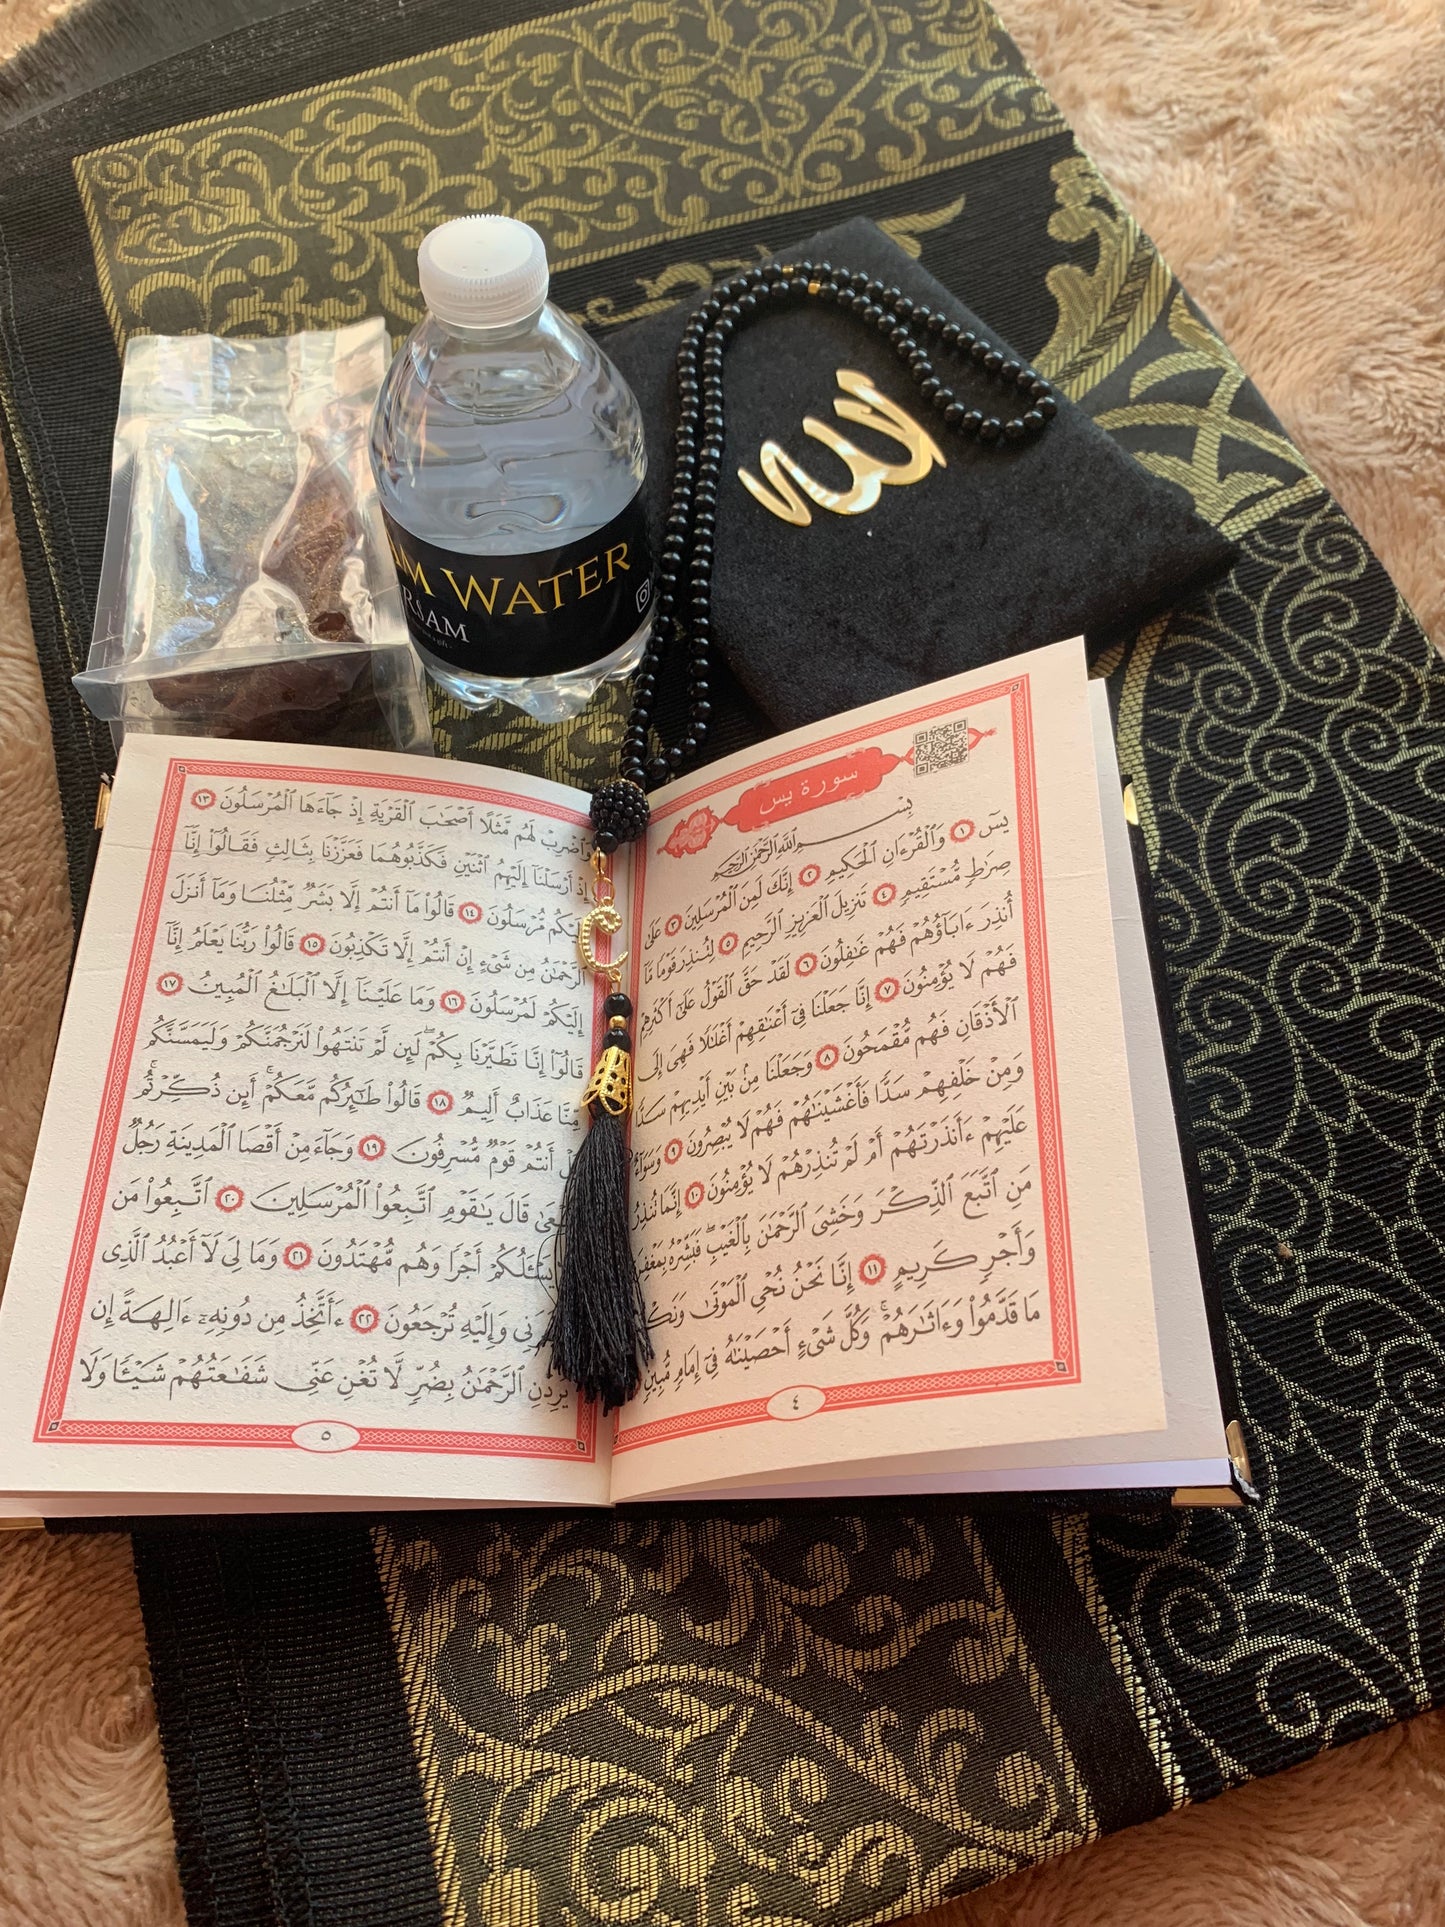 WATER
الله
سورة يس
بِسْمِ اللَّهِ الرَّحْمَٰنِ الرَّحِيمِ
يسٓ ١ وَٱلْقُرْءَانِ ٱلْحَكِيمِ ٢ إِنَّكَ لَمِنَ ٱلْمُرْسَلِينَ ٣ عَلَىٰ
صِرَٰطٍ مُّسْتَقِيمٍ ٤ تَنزِيلَ ٱلْعَزِيزِ ٱلرَّحِيمِ ٥ لِتُنذِرَ قَوْمًا مَّآ
أُنذِرَ ءَابَآؤُهُمْ فَهُمْ غَٰفِلُونَ ٦ لَقَدْ حَقَّ ٱلْقَوْلُ عَلَىٰٓ أَكْثَرِهِمْ
فَهُمْ لَا يُؤْمِنُونَ ٧ إِنَّا جَعَلْنَا فِىٓ أَعْنَٰقِهِمْ أَغْلَٰلًا فَهِىَ إِلَى
ٱلْأَذْقَانِ فَهُم مُّقْمَحُونَ ٨ وَجَعَلْنَا مِنۢ بَيْنِ أَيْدِيهِمْ سَدًّا
وَمِنْ خَلْفِهِمْ سَدًّا فَأَغْشَيْنَٰهُمْ فَهُمْ لَا يُبْصِرُونَ ٩ وَسَوَآءٌ
عَلَيْهِمْ ءَأَنذَرْتَهُمْ أَمْ لَمْ تُنذِرْهُمْ لَا يُؤْمِنُونَ ١٠ إِنَّمَا تُنذِرُ
مَنِ ٱتَّبَعَ ٱلذِّكْرَ وَخَشِىَ ٱلرَّحْمَٰنَ بِٱلْغَيْبِ ۖ فَبَشِّرْهُ
وَأَجْرٍ كَرِيمٍ ١١ إِنَّا نَحْنُ نُحْىِ ٱلْمَوْتَىٰ
مَا قَدَّمُوا۟ وَءَاثَٰرَهُمْ ۚ وَكُلَّ شَىْءٍ أَحْصَيْنَٰهُ فِىٓ إِمَامٍ مُّبِينٍ
٤
وَٱضْرِبْ لَهُم مَّثَلًا أَصْحَٰبَ ٱلْقَرْيَةِ إِذْ جَآءَهَا ٱلْمُرْسَلُونَ ١٣
إِذْ أَرْسَلْنَآ إِلَيْهِمُ ٱثْنَيْنِ فَكَذَّبُوهُمَا فَعَزَّزْنَا بِثَالِثٍ فَقَالُوٓا۟ إِنَّآ
إِلَيْكُم مُّرْسَلُونَ ١٤ قَالُوا۟ مَآ أَنتُمْ إِلَّا بَشَرٌ مِّثْلُنَا وَمَآ أَنزَلَ
ٱلرَّحْمَٰنُ مِن شَىْءٍ إِنْ أَنتُمْ إِلَّا تَكْذِبُونَ ١٥ قَالُوا۟ رَبُّنَا يَعْلَمُ إِنَّآ
إِلَيْكُمْ لَمُرْسَلُونَ ١٦ وَمَا عَلَيْنَآ إِلَّا ٱلْبَلَٰغُ ٱلْمُبِينُ ١٧
قَالُوٓا۟ إِنَّا تَطَيَّرْنَا بِكُمْ ۖ لَئِن لَّمْ تَنتَهُوا۟ لَنَرْجُمَنَّكُمْ وَلَيَمَسَّنَّكُم
مِّنَّا عَذَابٌ أَلِيمٌ ١٨ قَالُوا۟ طَٰٓئِرُكُم مَّعَكُمْ ۚ أَئِن ذُكِّرْتُم ۚ
أَنتُمْ قَوْمٌ مُّسْرِفُونَ ١٩ وَجَآءَ مِنْ أَقْصَا ٱلْمَدِينَةِ رَجُلٌ
قَالَ يَٰقَوْمِ ٱتَّبِعُوا۟ ٱلْمُرْسَلِينَ ٢٠ ٱتَّبِعُوا۟ مَن
يَسْـَٔلُكُمْ أَجْرًا وَهُم مُّهْتَدُونَ ٢١ وَمَا لِىَ لَآ أَعْبُدُ ٱلَّذِى
وَإِلَيْهِ تُرْجَعُونَ ٢٢ ءَأَتَّخِذُ مِن دُونِهِۦٓ ءَالِهَةً إِن
يُرِدْنِ ٱلرَّحْمَٰنُ بِضُرٍّ لَّا تُغْنِ عَنِّى شَفَٰعَتُهُمْ شَيْـًٔا وَلَا
٥